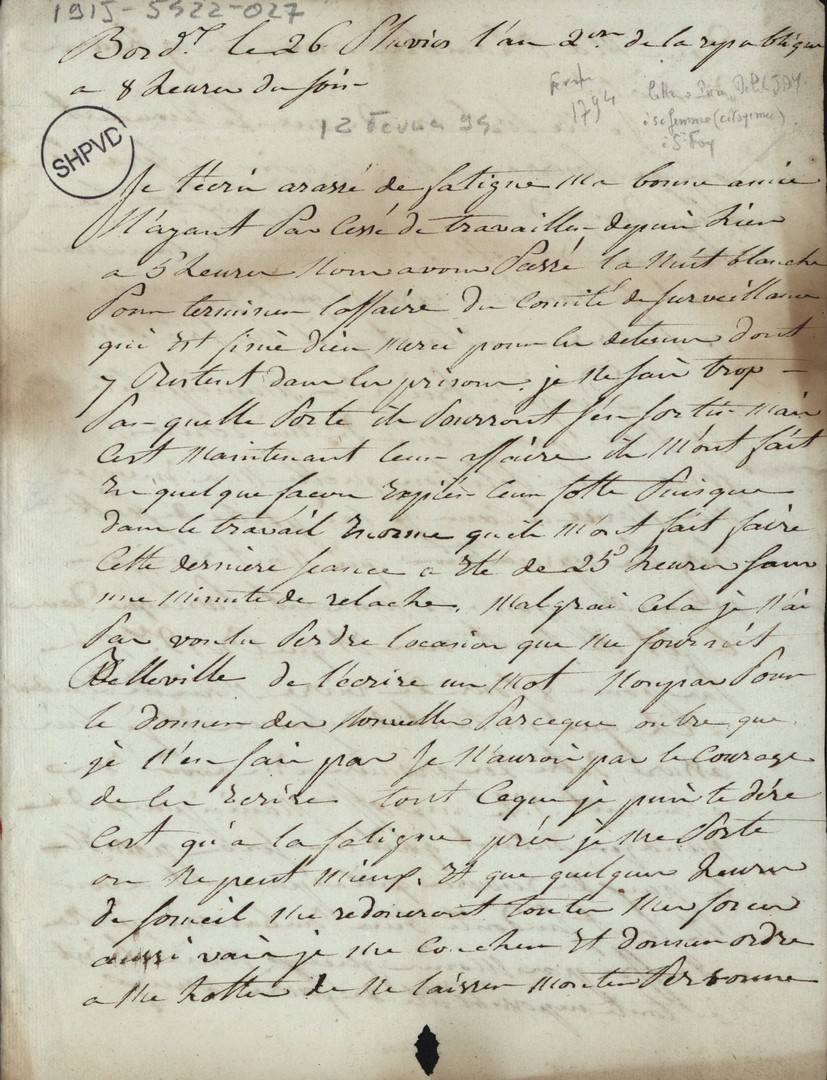 1915-5522-027
Bord.x le 26 Pluvios l'an 2em de la republique
a 8 heures du soir
fevrier 1794
lettre Delejay
a sa femme (citoyenne)
a Ste Foy
12 Fevrier 94
SHPVD
Je t'ecris arassé de fatigue ma bonne amie
N'ayant Pas Cessé de travailler depuis hier
a 5 heures Nous avons Passé la Nuit blanche
Pour terminer l'affaire du Comité de Surveillance
qui Est finie dieu merci pour les detenus dont
7 Restent dans les prisons. je ne sais trop
Par quelle Porte ils Pourront s'en sortir mais
C'est Maintenant leur affaire ils M'ont fait
En quelque facon Expier leur sotte Puisque
dans le travail Enorme qu'ils m'ont fait faire
Cette derniere seance a Eté de 25 heures sans
une Minute de relache. Malgrai Cela je N'ai
Pas voulu Perdre locasion que me fournit
Belleville de t'ecrire un Mot Non pas Pour
te donner des Nouvelles Parceque outre que
je N'en sais pas Je N'aurois pas le Courage
de les Ecrire tout Ceque je puis te dire
C'est qu'a la fatigue près je me Porte
on Ne peut Mieux. Et que quelques heures
de someil me redoneront toutes Mes forces
aussi vais je me Coucher Et donner ordre
a de Ne laisser Monter Personne